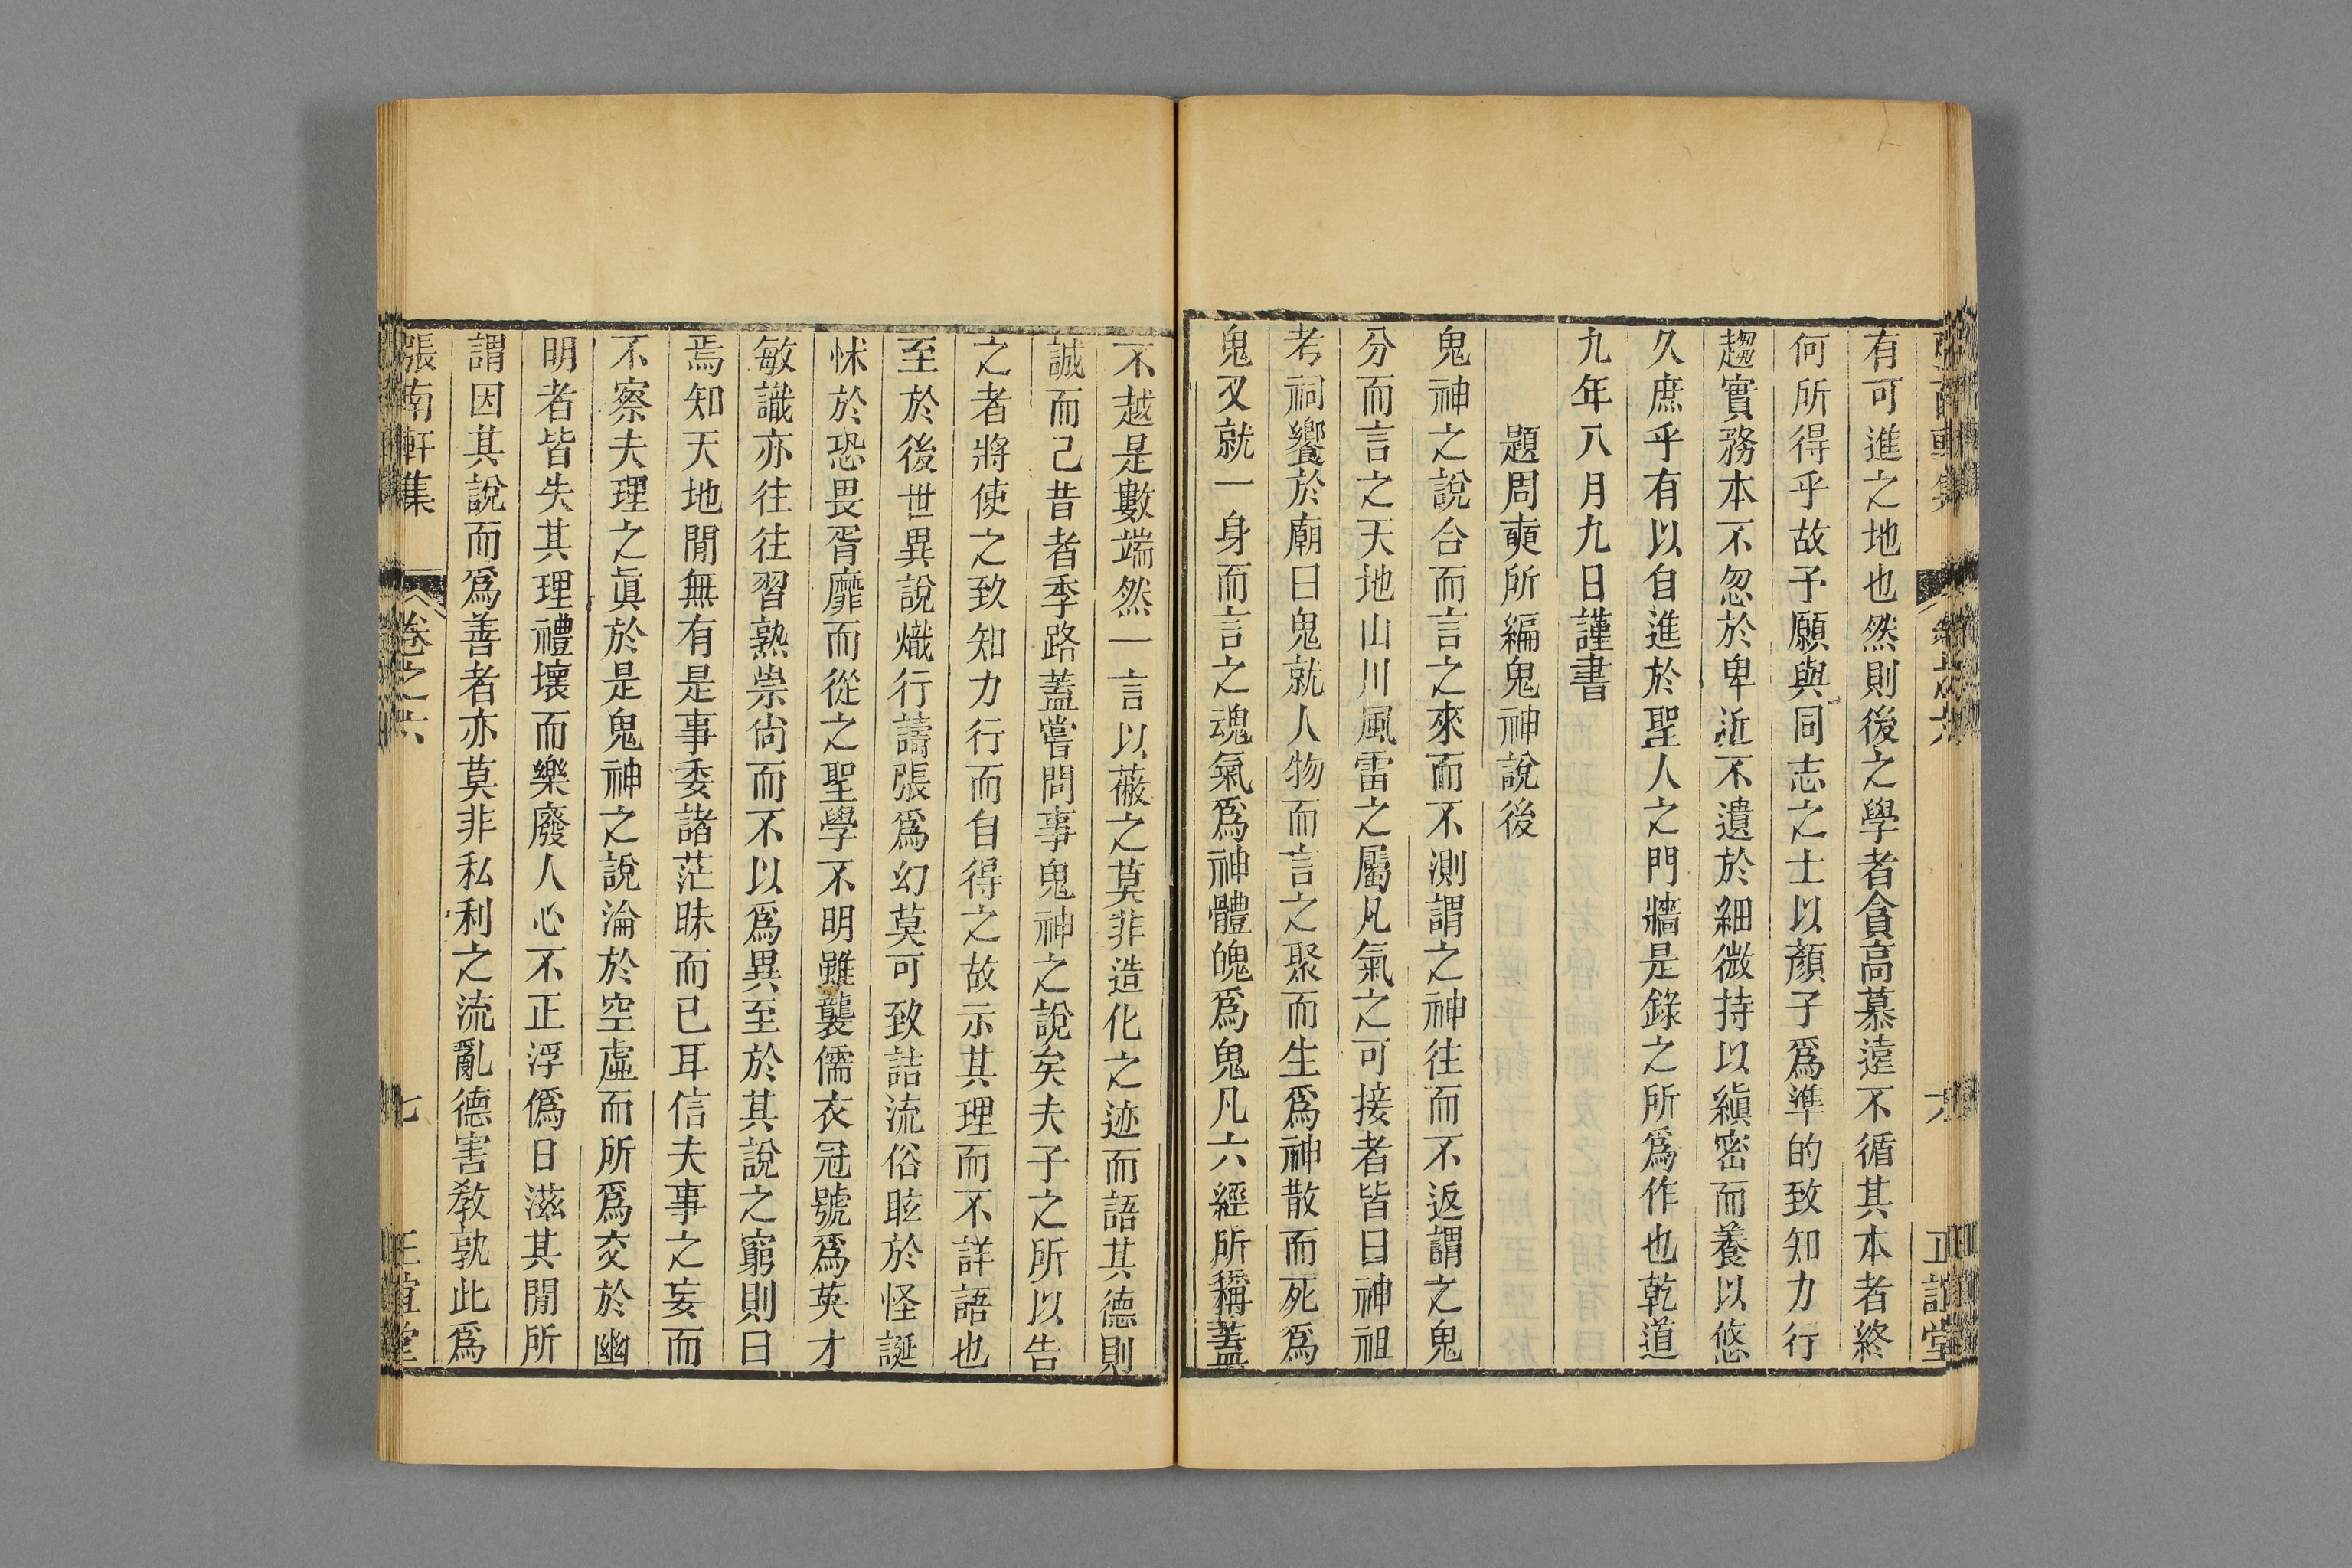 有可進之地也然則後之學者貪高慕遠不循其本者終
何所得乎故予願與同志之士以顏子爲準的致知力行
趨實務本不忽於卑近不遺於細微持以縝密而養以悠
久庶乎有以自進於聖人之門牆是錄之所爲作也乾道
九年八月九日謹書
題周奭所編鬼神說後
鬼神之說合而言之來而不測謂之神往而不返謂之鬼
分而言之天地山川風雷之屬凡氣之可接者皆曰神祖
考祠饗於廟曰鬼就人物而言之聚而生爲神散而死爲
鬼又就一身而言之魂氣爲神體魄爲鬼凡六經所稱蓋
不越是數端然一言以蔽之莫非造化之迹而語其德則
誠而己昔者季路蓋嘗問事鬼神之說矣夫子之所以告
之者將使之致知力行而自得之故示其理而不詳語也
至於後世異說熾行譸張爲幻莫可致詰流俗眩於怪誕
怵於恐畏胥靡而從之聖學不明雖襲儒衣冠號爲英才
敏識亦往往習熟崇尙而不以爲異至於其說之窮則曰
焉知天地閒無有是事委諸茫昧而已耳信夫事之妄而
不察夫理之眞於是鬼神之說淪於空虛而所爲交於幽
明者皆失其理禮壞而樂廢人心不正浮僞日滋其閒所
謂因其說而爲善者亦莫非私利之流亂德害敎孰此爲
張南軒集
卷之六
七